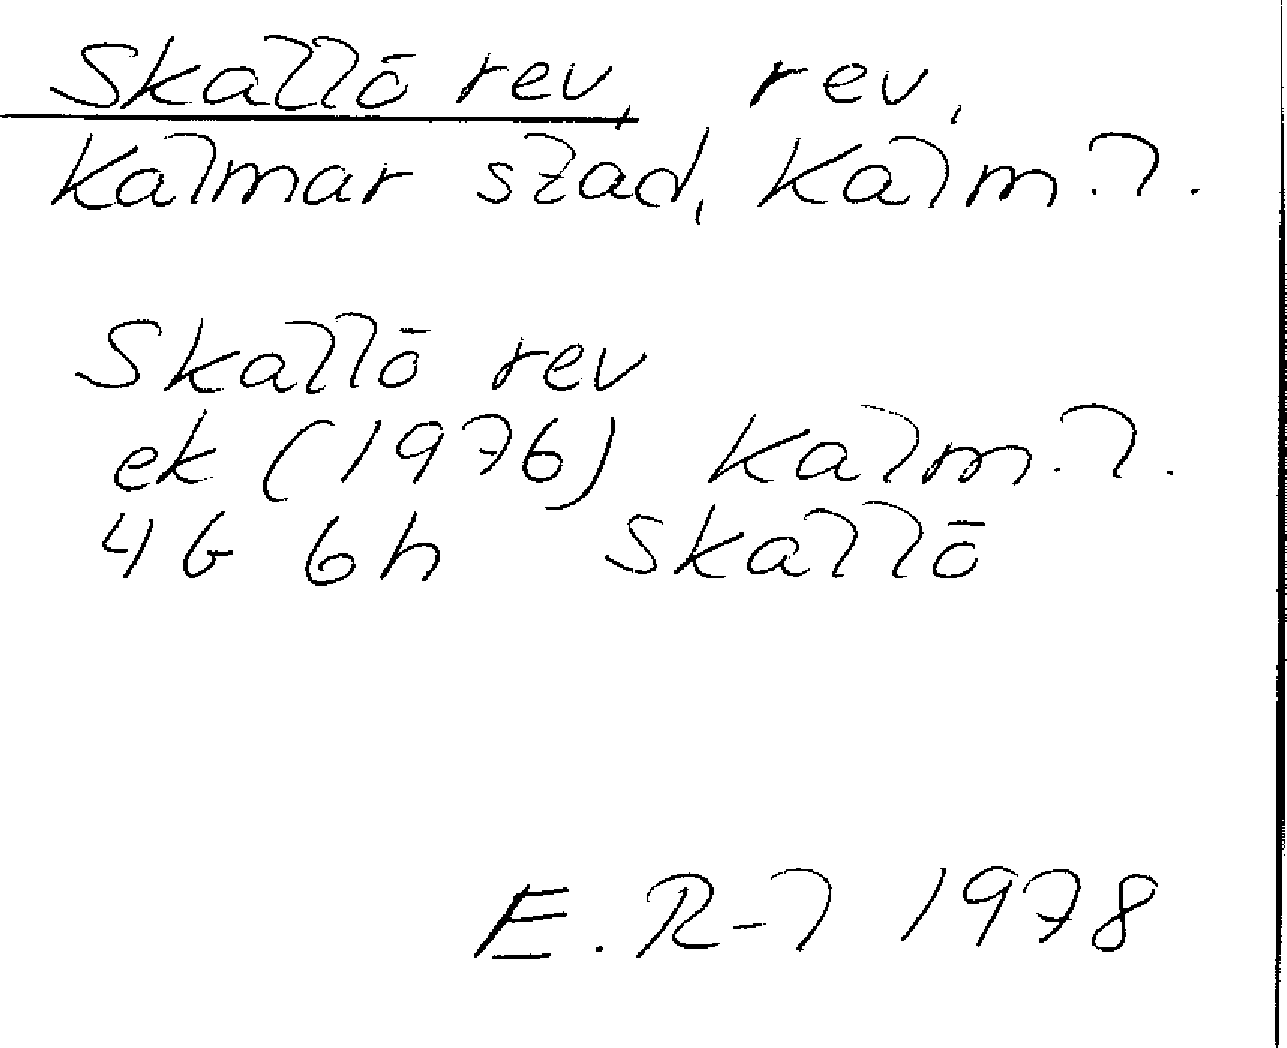 Skallö rev, rev,
Kalmar stad, Kalm. l.
Skallö rev
ek (1976) Kalm. l.
4G 6h Skallö
E. R-l 1978